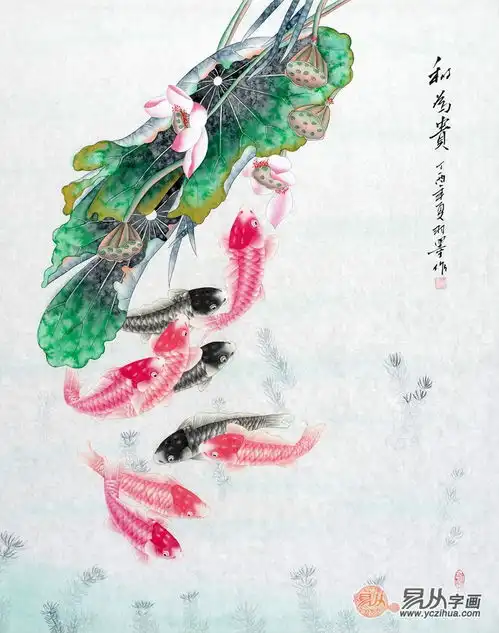 和为貴
丁酉年夏羽墨作
易从字画
www.yczihua.com